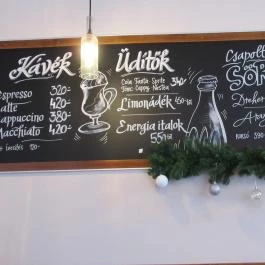 Kávék
espresso 320.-
latte 420.-
cappuccino 380.-
Macchiato 420.-
Üdítők
Cola Fanta Sprite
Tonic Cappy Nestea
Limonádék 450.-
Energia italok
550.-
Csapolt
SÖR
Dreher